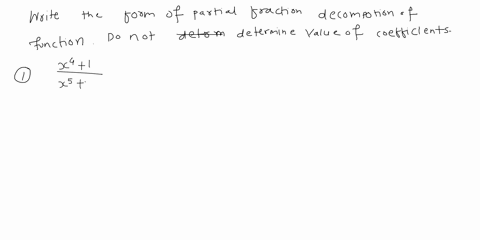 Write the form of partial fraction decomposition of
function. Do not determine value of coefficients.
① x⁴+1
x⁵+